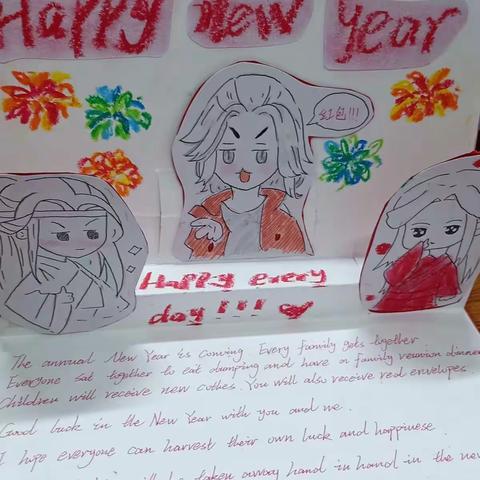 Happy New Year
红包!!!
Happy every
day!!!
The annual New Year is coming Every family gets together
Everyone sat together to eat dumping and have a family reunion dinner
Children will receive new cothes. You will also receive red envelopes.
Good luck in the New Year with you and me.
I hope everyone can harvest their own luck and happinese
will be taken away hand in hand in the new